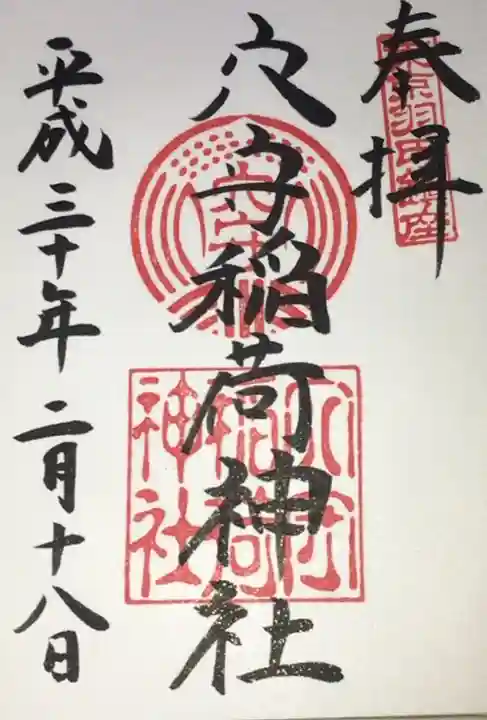 奉拝
東京羽田鎮座
穴守稲荷神社
穴守
稲荷
神社
平成三十年二月十八日